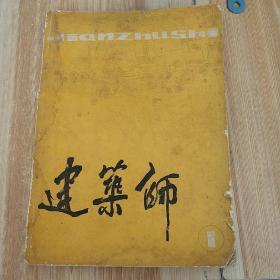 Jianzhushi
建築師
1